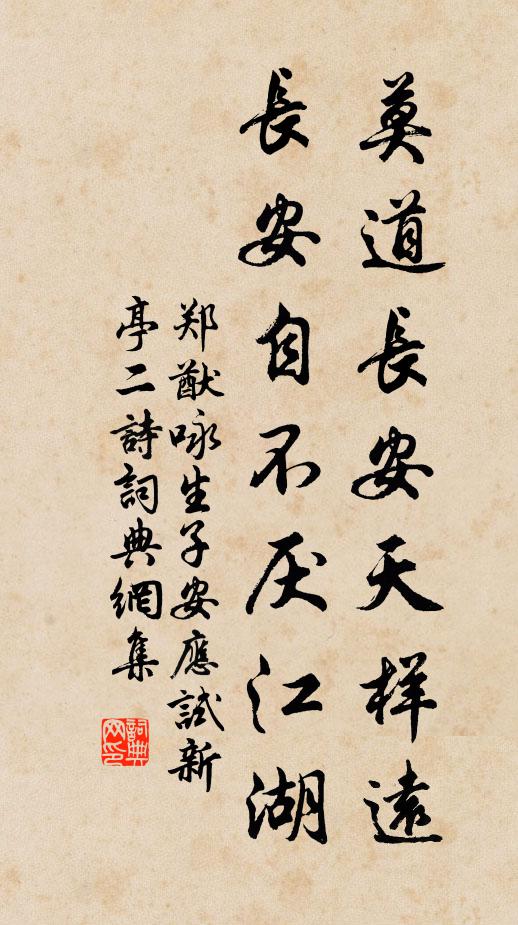 莫道長安天样遠
長安自不厌江湖
郑猷咏生子安應試新
亭二詩詞典網集
詞典
网印